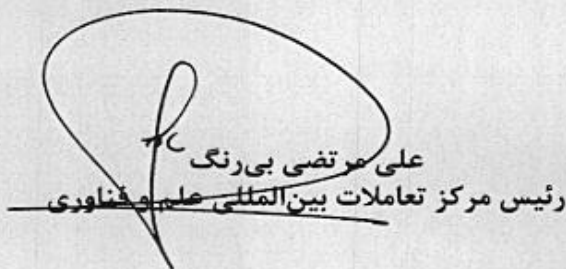 علی مرتضی بی‌رنگ
رئیس مرکز تعاملات بین‌المللی علم و فناوری